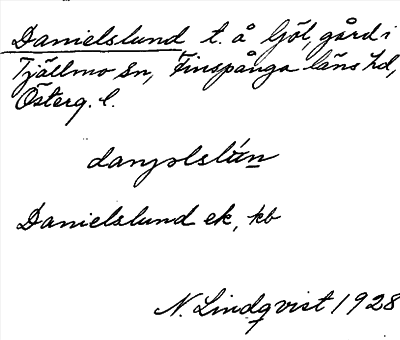 Danielslund t. å Göl, gård i
Tjällmo sn, Finspånga läns hd,
Österg. l.
Danielslund ek, kb
N. Lindqvist 1928